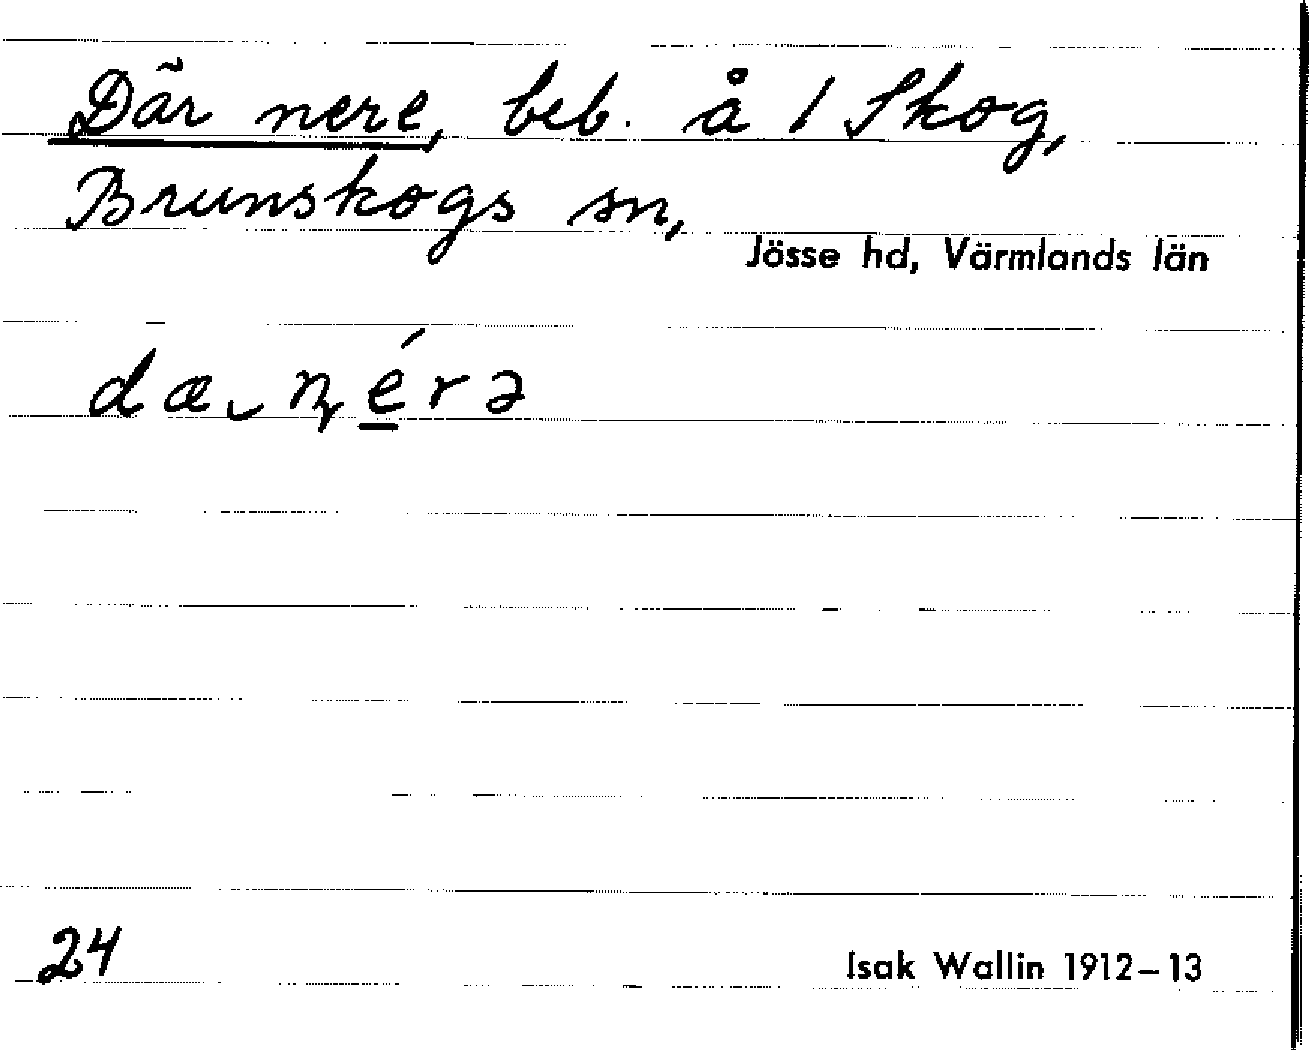 Där nere, beb. å 1 Skog,
Brunskogs sn,
Jösse hd, Värmlands län
dæ‿ɳérə
24
Isak Wallin 1912–13